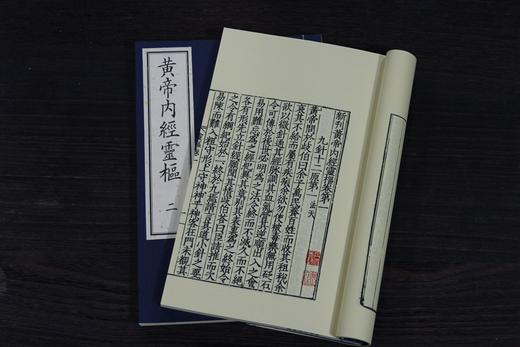 黃帝內經靈樞
二
新刊黃帝內經靈樞集第一
九針十二原第一 法天
黃帝問於歧伯曰余子萬民養百姓而收其租稅余
哀其不給而屬有疾病余欲勿使被毒藥無用砭石
欲以微針通其經脉調其血氣營其逆順出入之會
令可傳於後世必明為之法令終而不滅久而不絕
易用難忘為之經紀異其章別其表裏為之終始令
各有形先立針經願聞其情歧伯荅曰臣請推而次
之令有綱紀始於一終於九焉請言其道小針之要
易陳而難入粗守形上守神神乎神客在門未覩其